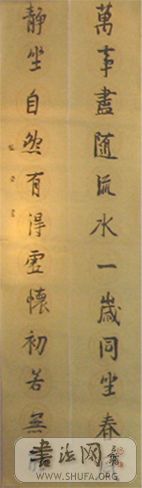 萬事盡隨流水一歲同坐春
靜坐自然有得虛懷初若無
書法网
WWW.SHUFA.ORG